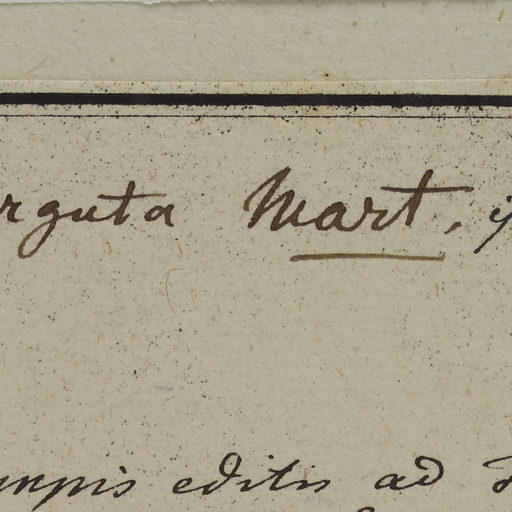 rguta Mart.
editis ad